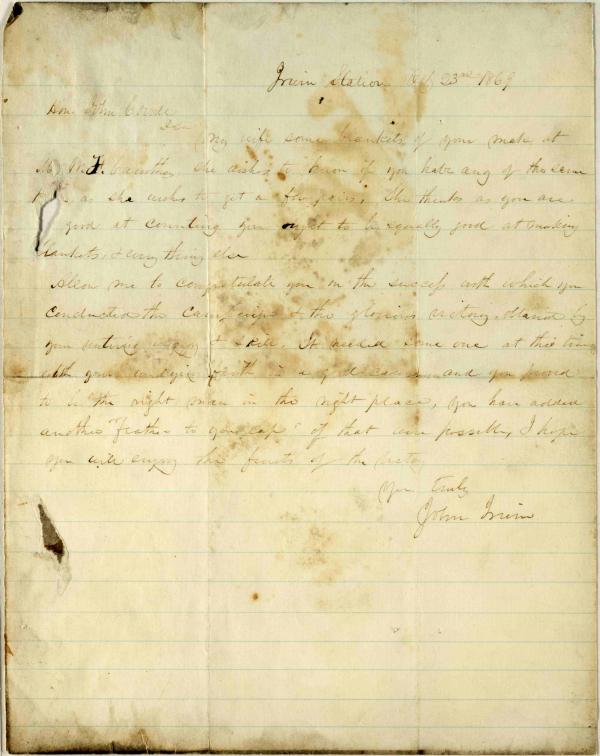 Irwin Station Oct 23rd 1869
Hon. John Covode
Dear
my wife some blankets of your make at
she wishes to know if you have any of the same
as she wishes to get a few pairs, She thinks as you are
good at counting you ought to be equally good at making
blankets, & everything else
Allow me to congratulate you on the success with which you
conducted the campaign & the glorious victory obtained by
your untiring energy & skill. It needed some one at this time
with your and you proved
to be the right man in the right place, you have added
another "Feather to your cap" if that were possible, I hope
you will enjoy the fruits of the victory
Yours truly
John Irwin